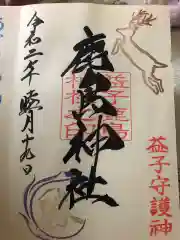 益子守護神
鹿島神社
令和二年睦月十九日